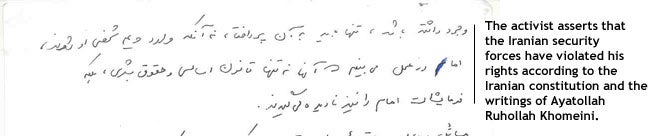 وجود داشته باشد، تنها باید به آن پرداخت، نه آنکه وارد حریم شخصی او شوند،
اما در عمل می بینیم در آنها نه تنها قانون اساسی و حقوق بشری، بلکه
فرمایشات امام را نیز نادیده می گیرند.
The activist asserts that
the Iranian security
forces have violated his
rights according to the
Iranian constitution and the
writings of Ayatollah
Ruhollah Khomeini.